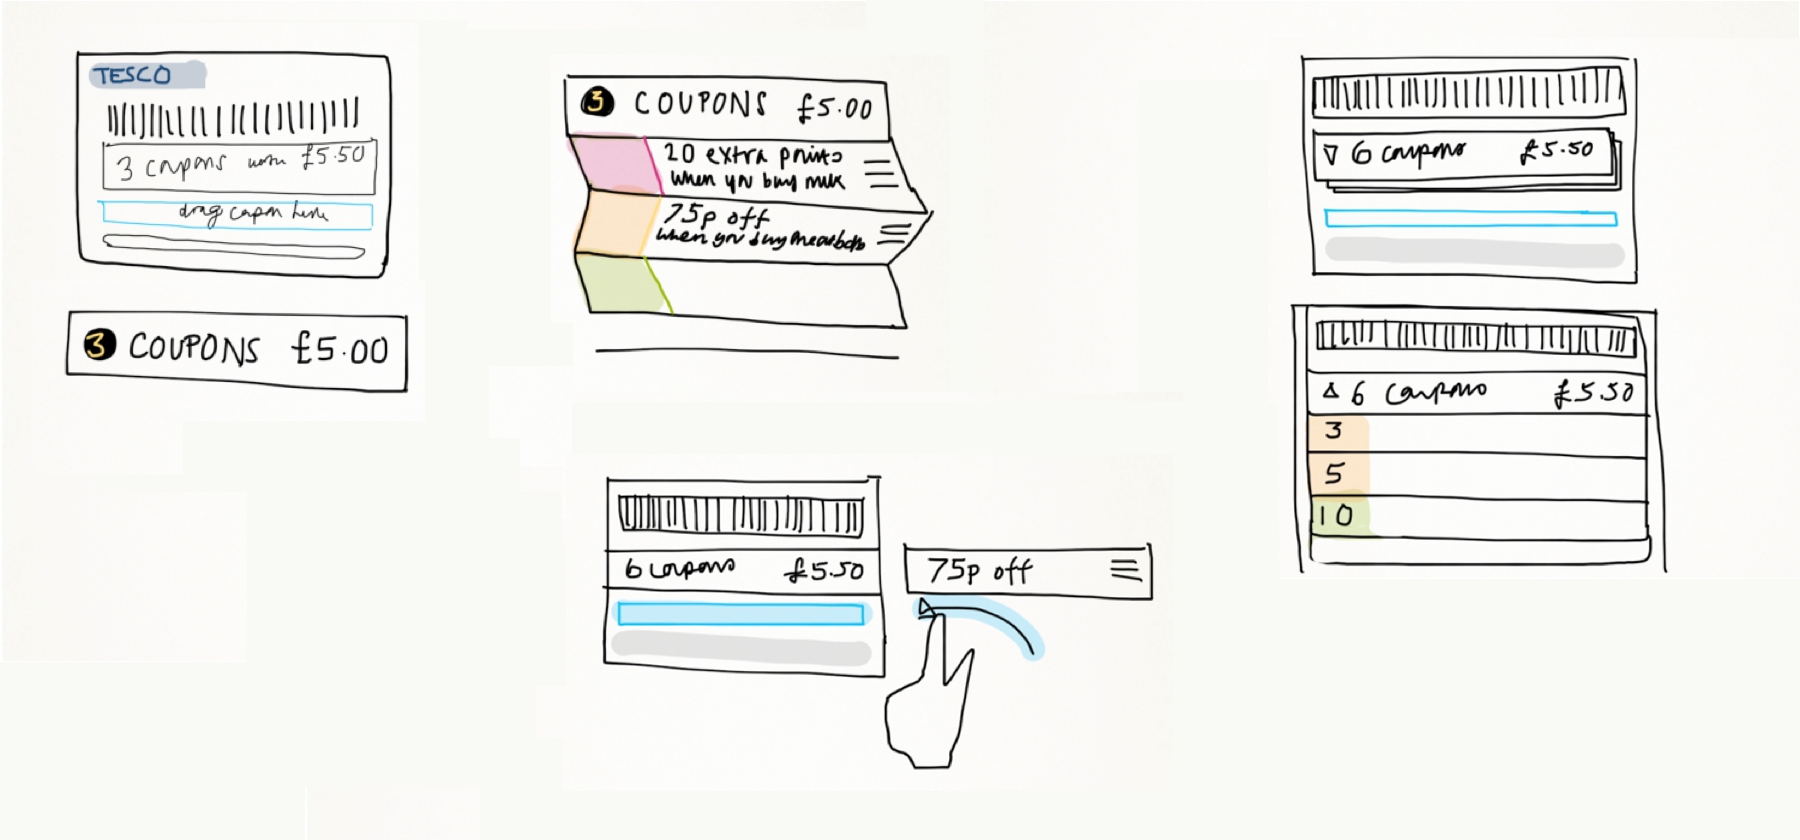 TESCO
3 coupons worth £5.50
drag coupon here
3 COUPONS £5.00
3 COUPONS £5.00
20 extra points
when you buy milk
75p off
when you buy meatballs
6 coupons £5.50
75p off
6 coupons £5.50
6 coupons £5.50
3
5
10